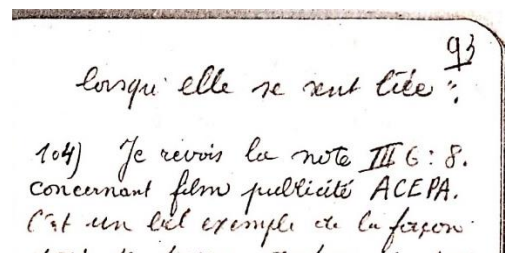 93
lorsqu'elle se sent liée".
104) Je revois la note III 6 : 8.
concernant film publicité ACEPA.
C'est un bel exemple de la façon